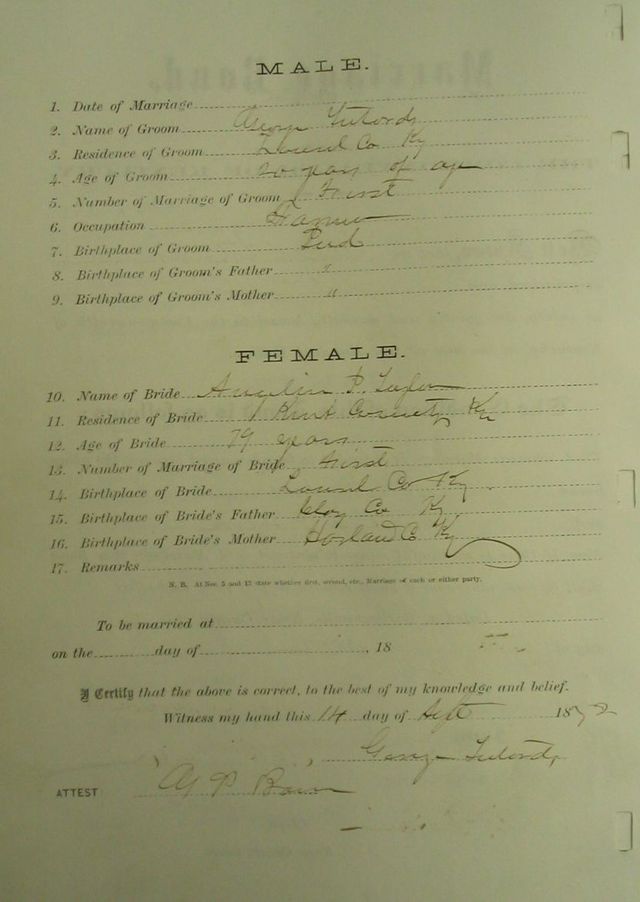 MALE.
1. Date of Marriage
2. Name of Groom
3. Residence of Groom Laurel Co Ky
4. Age of Groom 20 years of age
5. Number of Marriage of Groom First
6. Occupation Farmer
7. Birthplace of Groom
8. Birthplace of Groom's Father "
9. Birthplace of Groom's Mother "
FEMALE.
10. Name of Bride P.
11. Residence of Bride County Ky
12. Age of Bride 19 years
13. Number of Marriage of Bride First
14. Birthplace of Bride Laurel Co Ky
15. Birthplace of Bride's Father Clay Co Ky
16. Birthplace of Bride's Mother Co Ky
17. Remarks
N. B. At Nos. 5 and 13 state whether first, second, etc., Marriage of each or either party.
To be married at
on the day of , 18
I Certify that the above is correct, to the best of my knowledge and belief.
Witness my hand this 14 day of Sept 1872
George
ATTEST